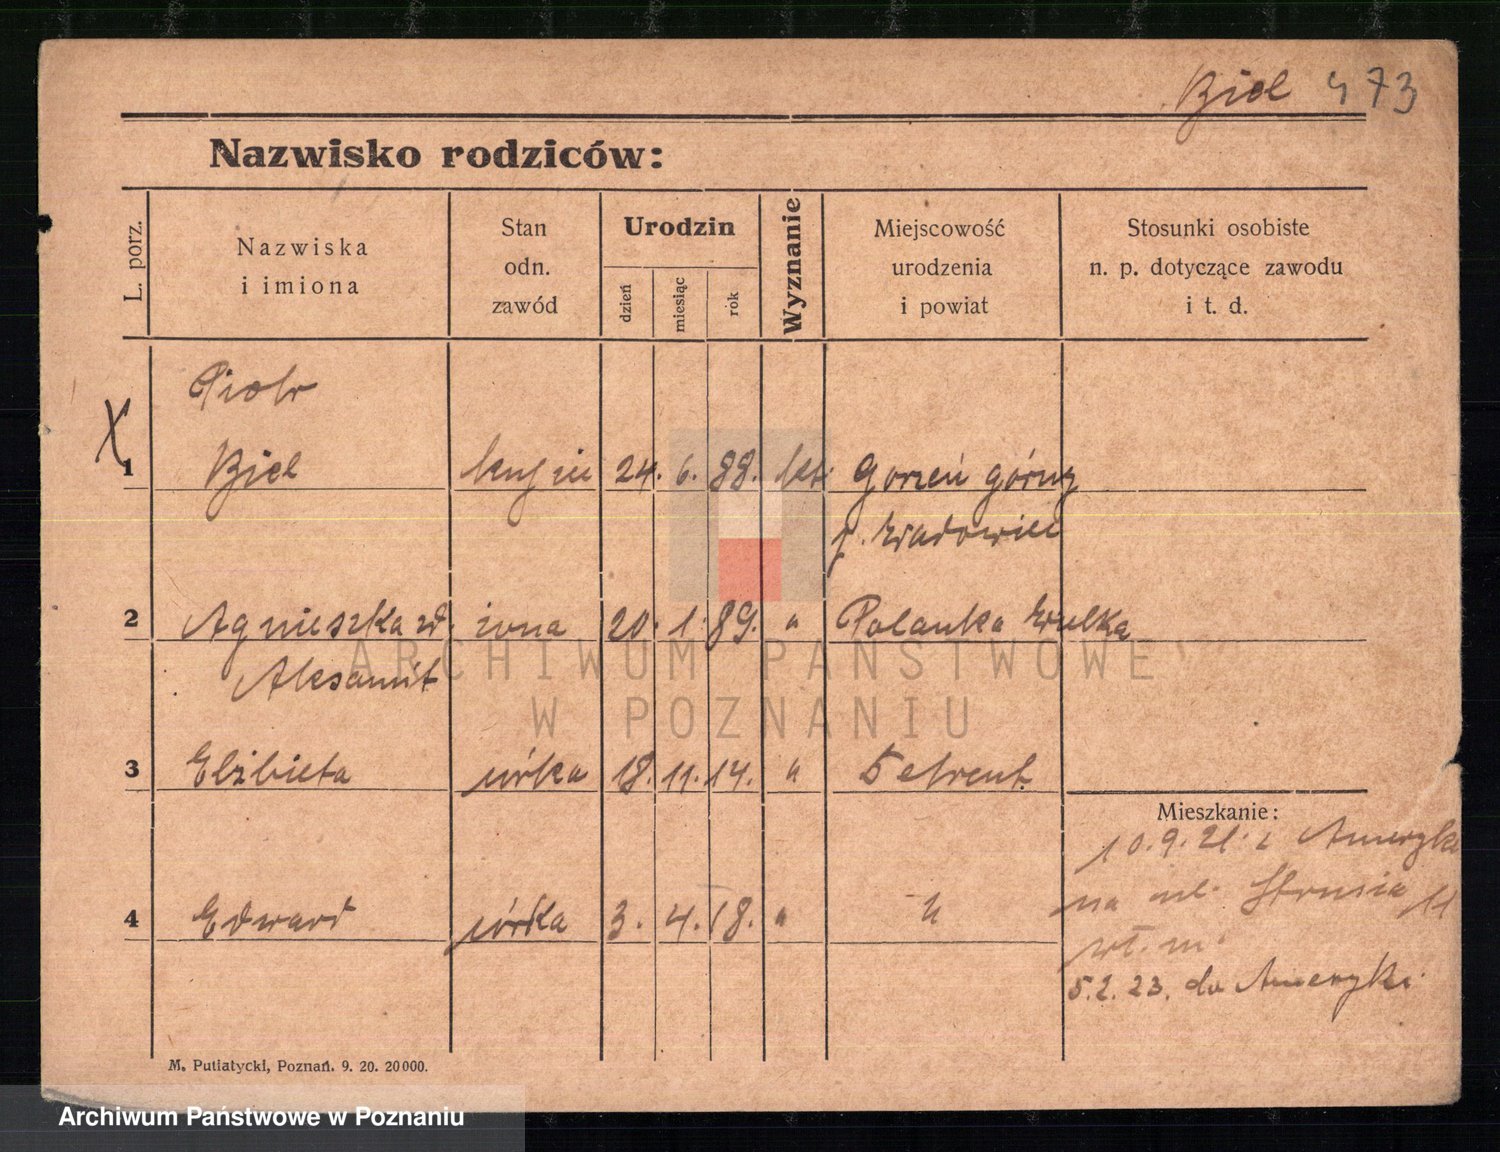 Biel 473
Nazwisko rodziców:
L. porz.
Nazwiska
i imiona
Stan
odn.
zawód
Urodzin
dzień
miesiąc
rok
Wyznanie
Miejscowość
urodzenia
i powiat
Stosunki osobiste
n. p. dotyczące zawodu
i t. d.
Piotr
X
1 Biel 24. 6. 88. kat. Gorzeń górny
p. Wadowice
2 Agnieszka zd. żona 20. 1. 89. " Polanka Wielka
Aksamit
3 Elżbieta córka 18. 11. 14. "
4 Edward córka 3. 4. 18. " "
Mieszkanie:
10.9.21. z Ameryki
na ul. Strusia 11
5.2.23. do Ameryki
M. Putiatycki, Poznań. 9. 20. 20 000.
ARCHIWUM PAŃSTWOWE
W POZNANIU
Archiwum Państwowe w Poznaniu